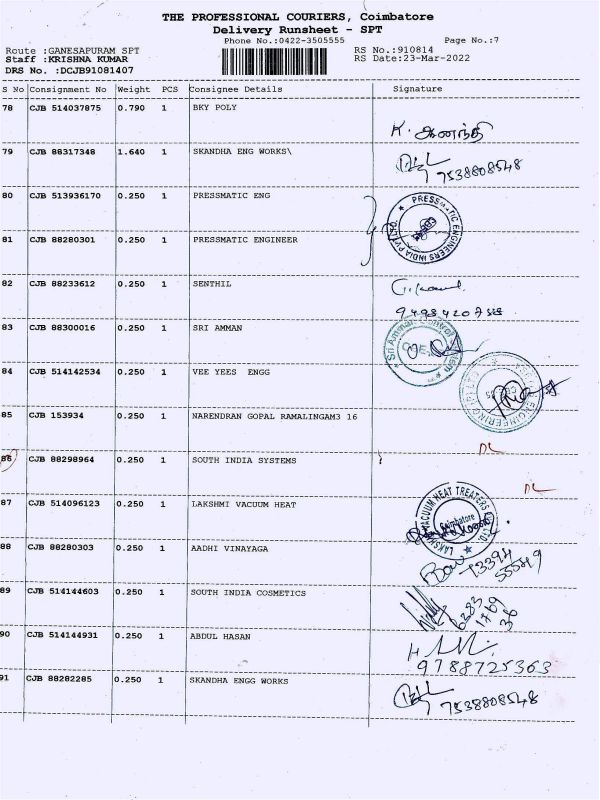 THE PROFESSIONAL COURIERS, Coimbatore
Delivery Runsheet - SPT
Phone No.:0422-3505555 Page No.:7
Route :GANESAPURAM SPT RS No.:910814
Staff :KRISHNA KUMAR RS Date:23-Mar-2022
DRS No. :DCJB91081407
S No Consignment No Weight PCS Consignee Details Signature
78 CJB 514037875 0.790 1 BKY POLY
K. ஆனந்தி
79 CJB 88317348 1.640 1 SKANDHA ENG WORKS\
7538808548
80 CJB 513936170 0.250 1 PRESSMATIC ENG
PRESSMATIC ENGINEERS INDIA PVT LTD
81 CJB 88280301 0.250 1 PRESSMATIC ENGINEER
82 CJB 88233612 0.250 1 SENTHIL
83 CJB 88300016 0.250 1 SRI AMMAN
Sri Amman
84 CJB 514142534 0.250 1 VEE YEES ENGG
ENGINEERING
85 CJB 153934 0.250 1 NARENDRAN GOPAL RAMALINGAM3 16
DL
86 CJB 88298964 0.250 1 SOUTH INDIA SYSTEMS
DL
87 CJB 514096123 0.250 1 LAKSHMI VACUUM HEAT
LAKSHMI VACUUM HEAT TREATERS
Coimbatore
88 CJB 88280303 0.250 1 AADHI VINAYAGA
73394
55549
89 CJB 514144603 0.250 1 SOUTH INDIA COSMETICS
6283
1769
36
90 CJB 514144931 0.250 1 ABDUL HASAN
9788725363
91 CJB 88282285 0.250 1 SKANDHA ENGG WORKS
7538808548